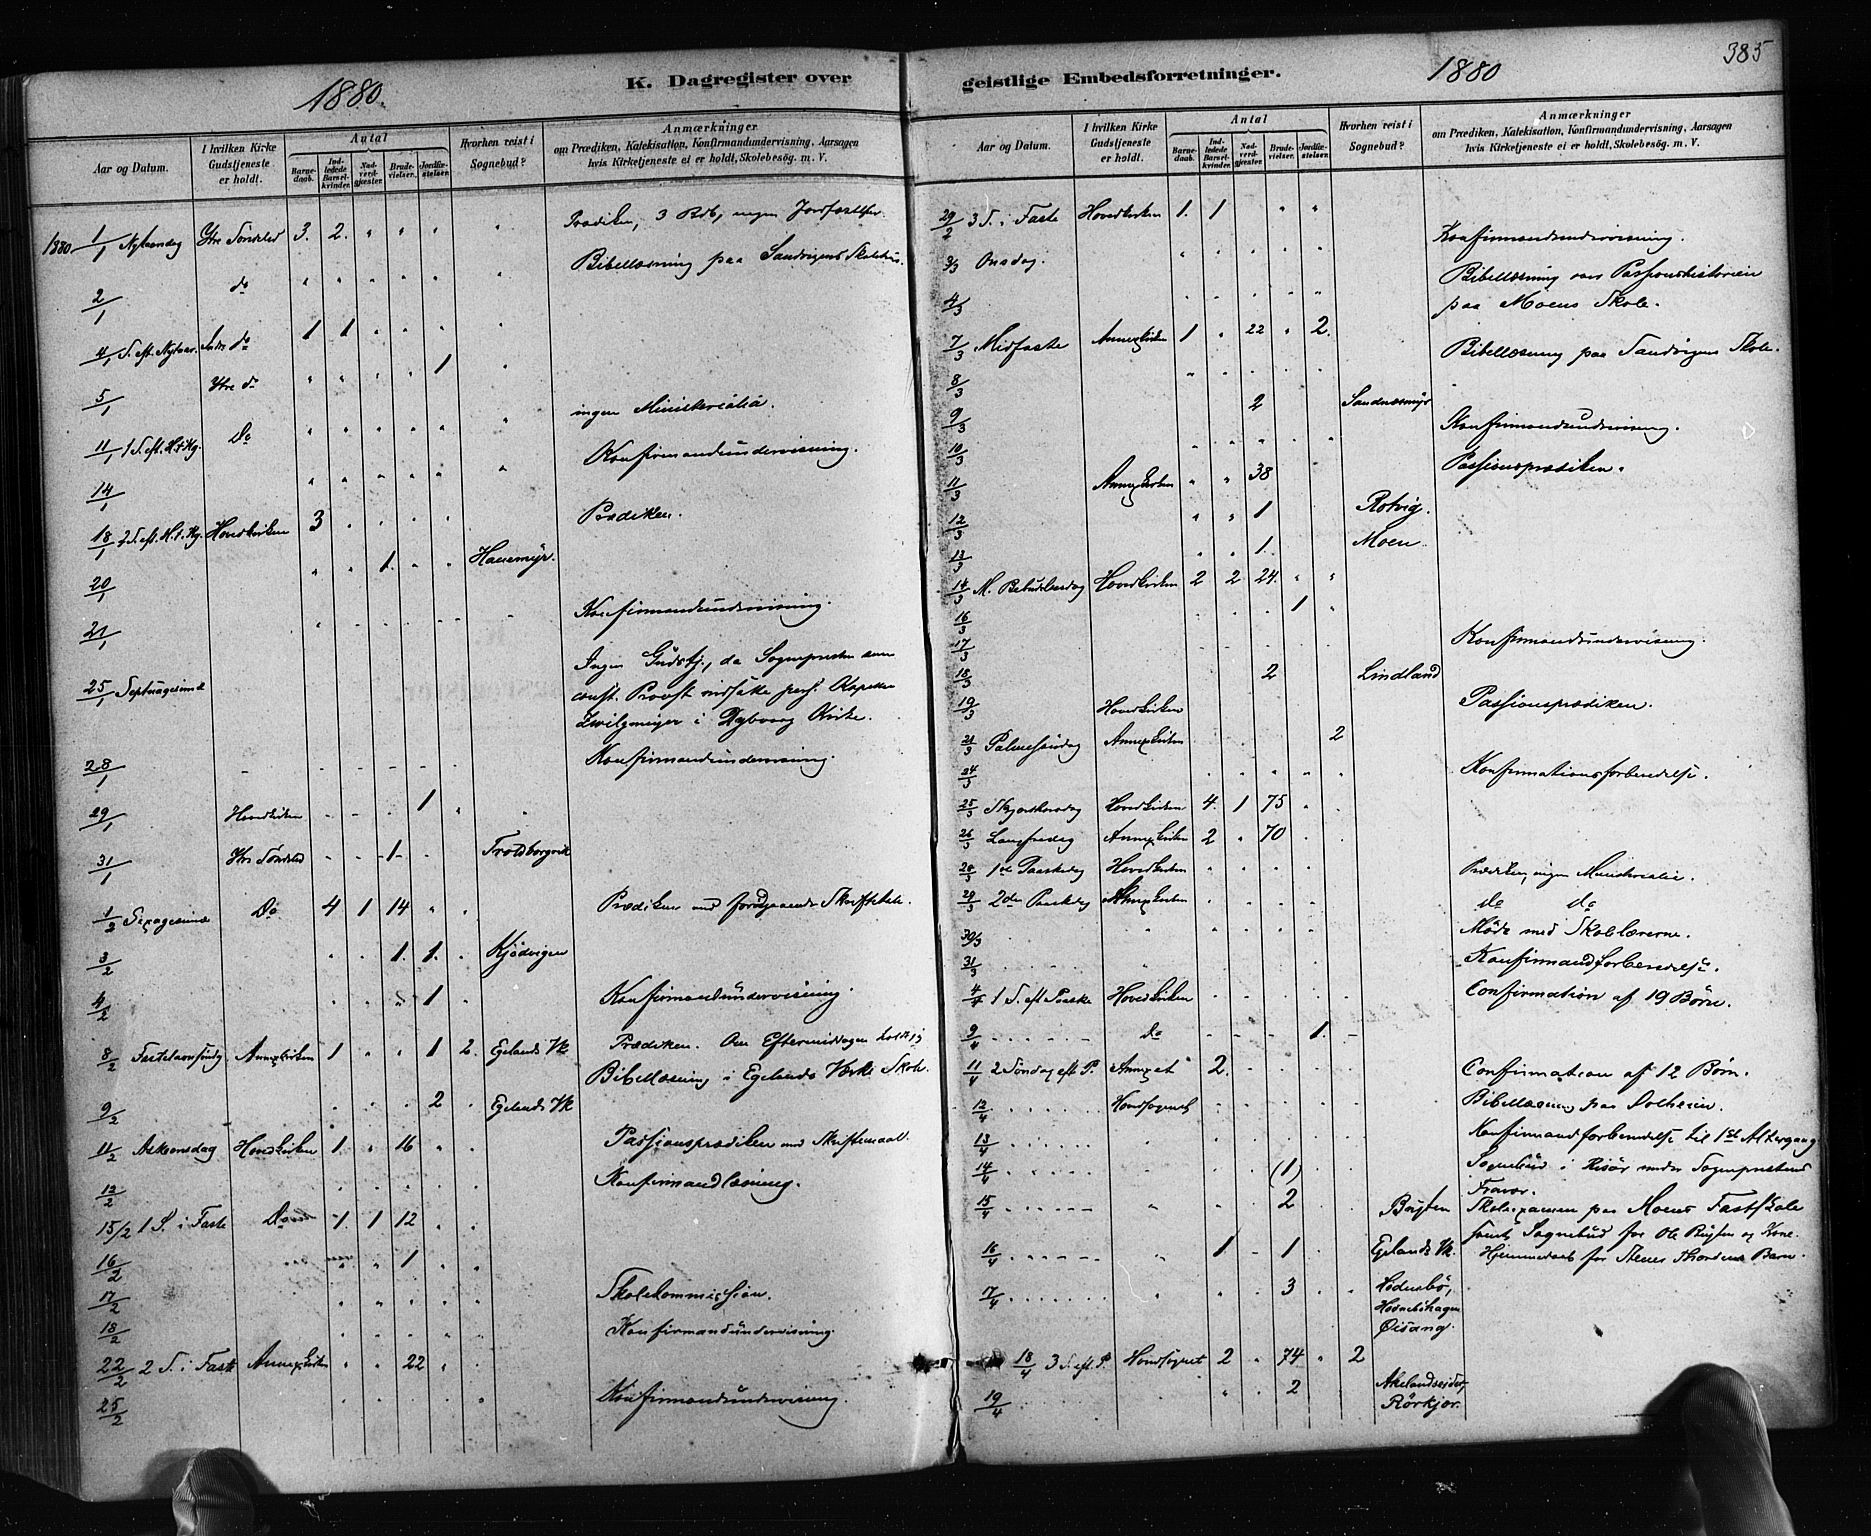 1880.
K. Dagregister over
Antal
Aar og Datum.
I hvilken Kirke Gudstjeneste er holdt.
Barnedaab.
Indledede Barselkvinder.
Nadverdgjester.
Brudevielser.
Jordfæstelser.
Hvorhen reist i Sognebud?
Anmærkninger
om Prædiken, Katekisation, Konfirmandundervisning, Aarsagen
hvis Kirketjeneste ei er holdt, Skolebesøg. m. V.
1880 1/1 Nytaarsdag Ytre Søndeled 3. 2. " " " " Prædiken, 3 Rdb, ingen Jordfæstelser.
2/1 do " " " " " " Bibellæsning paa Sandvigens Skolehus.
4/1 S. eft. Nytaar Indre do 1 1 " " " "
5/1 Ytre do " " " " 1
11/1 1 S. eft. H.t.Kg. Do " " " " " " ingen Ministerialia.
14/1 " " " " " " Konfirmandundervisning.
18/1 2 S. eft. H.t.Kg. Hovedkirken 3 " " " " Prædiken.
20/1 " " 1. " " Havemyr.
21/1 " " " " " " Konfirmandundervisning.
25/1 Septuagesima Ingen Gudstj., da Sognepresten som
const. Provst indsatte pers. Kapellan
Zwilgmeyer i Dybvaag Kirke.
28/1 - - - - - - Konfirmandundervisning.
29/1 Hovedkirken - - - 1 " "
31/1 Ytre Søndeled - - 1 - - Troldborgvik
1/2 Sexagesima Do 4 1 14 " " Prædiken med foregaaende Skriftetale.
3/2 " " 1. 1. " Kjødvigen
4/2 " " " 1 " Konfirmandundervisning.
8/2 Fastelavnsøndg Annexkirken 1 " " 1 2. Egelands Vk Prædiken. Om Eftermiddagen holdtes
Bibellæsning i Egelands Værks Skole.
9/2 " " " 2 " Egelands Vk
11/2 Askeonsdag Hovedkirken 1. " 16 " " Passionsprædiken med Skriftemaal.
12/2 " " " " " Konfirmandlæsning.
15/2 1 S. i Faste Do 1 1 12 " "
16/2 " " 1 " "
17/2 " " " " " Skolekommission.
18/2 " " " " " Konfirmandundervisning.
22/2 2 S. i Faste Annexkirken " " 22 " "
25/2 Konfirmandundervisning.
geistlige Embedsforretninger.
1880
385
Antal
Aar og Datum.
I hvilken Kirke Gudstjeneste er holdt.
Barnedaab.
Indledede Barselkvinder.
Nadverdgjester.
Brudevielser.
Jordfæstelser.
Hvorhen reist i Sognebud?
Anmærkninger
om Prædiken, Katekisation, Konfirmandundervisning, Aarsagen
hvis Kirketjeneste ei er holdt, Skolebesøg. m. V.
29/2 3 S. i Faste Hovedkirken 1. 1 " "
3/3 Onsdag. " " " " " Konfirmandundervisning.
4/3 " " " " " Bibellæsning over Passionshistorien
paa Moens Skole.
7/3 Midfaste Annexkirken 1 " 22 " 2.
8/3 " " " " " Bibellæsning paa Sandvigens Skole.
9/3 2 Sandnæsmyr
10/3 " " " " " Konfirmandundervisning.
11/3 Annexkirken " " 38 Passionsprædiken.
12/3 " " 1 Rotvig.
13/3 " " 1. Moen
14/3 M. Bebudelsesdag Hovedkirken 2 2 24. " "
16/3 " " " 1 "
17/3 Konfirmandundervisning.
18/3 2 Lindland
19/3 Hovedkirken Passionsprædiken.
21/3 Palmesøndag Annexkirken 2
24/3 " " " " " Konfirmationsforberedelse.
25/3 Skjærthorsdag Hovedkirken 4. 1 75 " "
26/3 Langfredag Annexkirken 2 " 70 " "
28/3 1ste Paaskedag Hovedkirken " " " " " Prædiken, ingen Ministerialia.
29/3 2den Paaskedag Annexkirken " " " " " do do
30/3 " " " " " Møde med Skolelærerne.
31/3 " Konfirmandforberedelse.
4/4 1 S. eft Paaske Hovedkirken - - - - - Confirmation af 19 Børn.
9/4 do - - - 1. -
11/4 2 Søndag eft P. Annexet 2. Confirmation af 12 Børn.
12/4 Hovedsognet - - - - - Bibellæsning paa Solheim.
13/4 Konfirmandforberedelse til 1ste Altergang
14/4 (1) Sognebud i Risør under Sogneprestens
Fravær.
15/4 " 2 Brysten Skoleexamen paa Moens Fastskole
samt Sognebud for Ole Brysten og Kone
16/4 " 1 - 1 Egelands Vk. Hjemmedaab for Barn.
17/4 " " 3 Hødnebø,
Hødnebøhagen
Øisang.
18/4 3 S. eft. P. Hovedsognet 2 " 74 " 2
19/4 2 Akelandseidet,
Rørkjær.